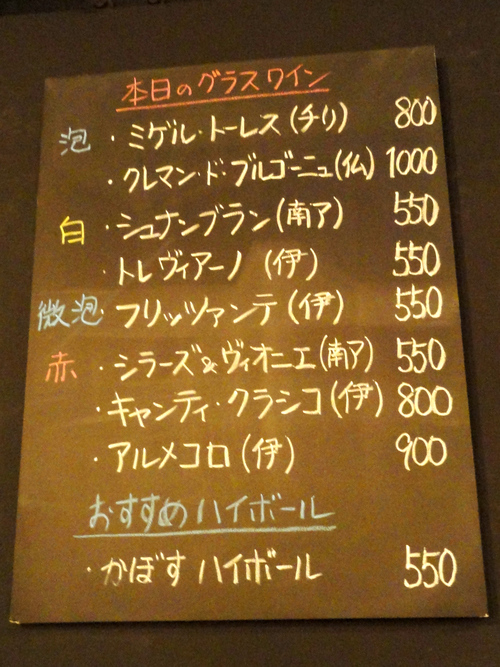 本日のグラスワイン
泡 ・ミゲル・トーレス(チリ) 800
・クレマン・ド・ブルゴーニュ(仏) 1000
白 ・シュナンブラン(南ア) 550
・トレヴィアーノ (伊) 550
微泡 ・フリッツァンテ(伊) 550
赤 ・シラーズ&ヴィオニエ(南ア) 550
・キャンティ・クラシコ(伊) 800
・アルメコロ(伊) 900
おすすめハイボール
・かぼす ハイボール 550